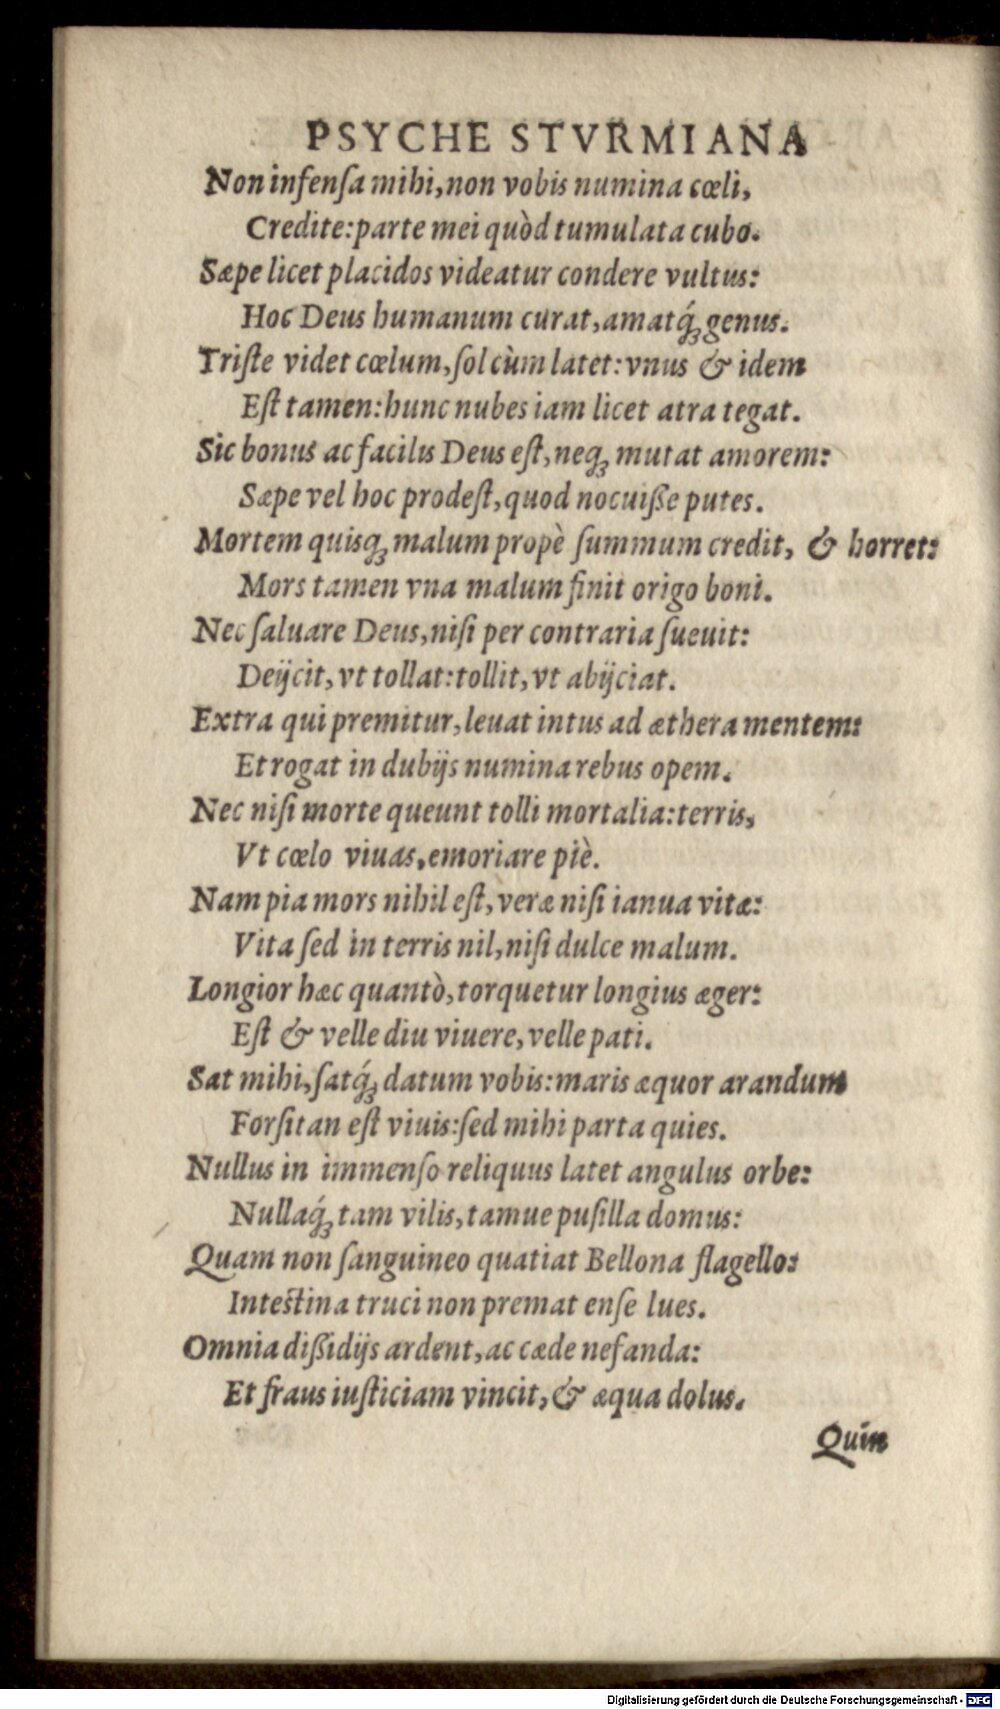 PSYCHE STVRMIANA
Non infenſa mihi, non vobis numina cœli,
Credite: parte mei quòd tumulata cubo.
Sæpe licet placidos videatur condere vultus:
Hoc Deus humanum curat, amatq́ꝫ genus.
Triſte videt cœlum, ſol cùm latet: vnus & idem
Eſt tamen: hunc nubes iam licet atra tegat.
Sic bonus ac facilis Deus eſt, neqꝫ mutat amorem:
Sæpe vel hoc prodeſt, quod nocuiße putes.
Mortem quisqꝫ malum propè ſummum credit, & horret:
Mors tamen vna malum finit origo boni.
Nec ſaluare Deus, niſi per contraria ſueuit:
Deijcit, vt tollat: tollit, vt abijciat.
Extra qui premitur, leuat intus ad æthera mentem:
Et rogat in dubijs numina rebus opem.
Nec niſi morte queunt tolli mortalia: terris,
Vt cœlo viuas, emoriare piè.
Nam pia mors nihil eſt, veræ niſi ianua vitæ:
Vita ſed in terris nil, niſi dulce malum.
Longior hæc quantò, torquetur longius æger:
Eſt & velle diu viuere, velle pati.
Sat mihi, ſatq́ꝫ datum vobis: maris æquor arandum
Forſitan eſt viuis: ſed mihi parta quies.
Nullus in immenſo reliquus latet angulus orbe:
Nullaq́ꝫ tam vilis, tamue puſilla domus:
Quam non ſanguineo quatiat Bellona flagello:
Inteſtina truci non premat enſe lues.
Omnia dißidijs ardent, ac cæde nefanda:
Et fraus iuſticiam vincit, & æqua dolus.
Quin
Digitalisierung gefördert durch die Deutsche Forschungsgemeinschaft - DFG